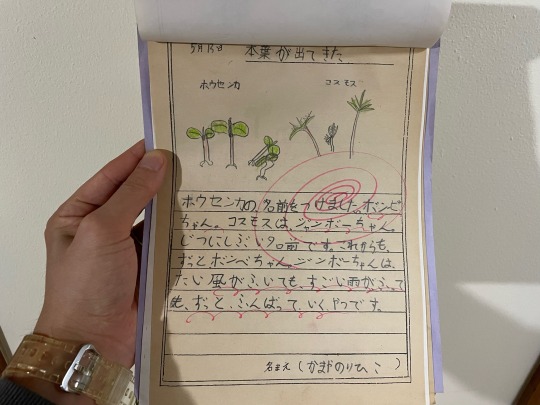 5月15日 本葉が出てきた
ホウセンカ コスモス
ホウセンカの名前をつけました。ボンピ
ちゃん。コスモスは、ジャンボーちゃん。
じつにしぶい名前です。これからも、
ずっとボンペちゃん、ジンボーちゃんは、
たい風がふいても、すごい雨がふって
も、ずっと、ふんばって、いくやつです。
名まえ(かまどのりひこ)